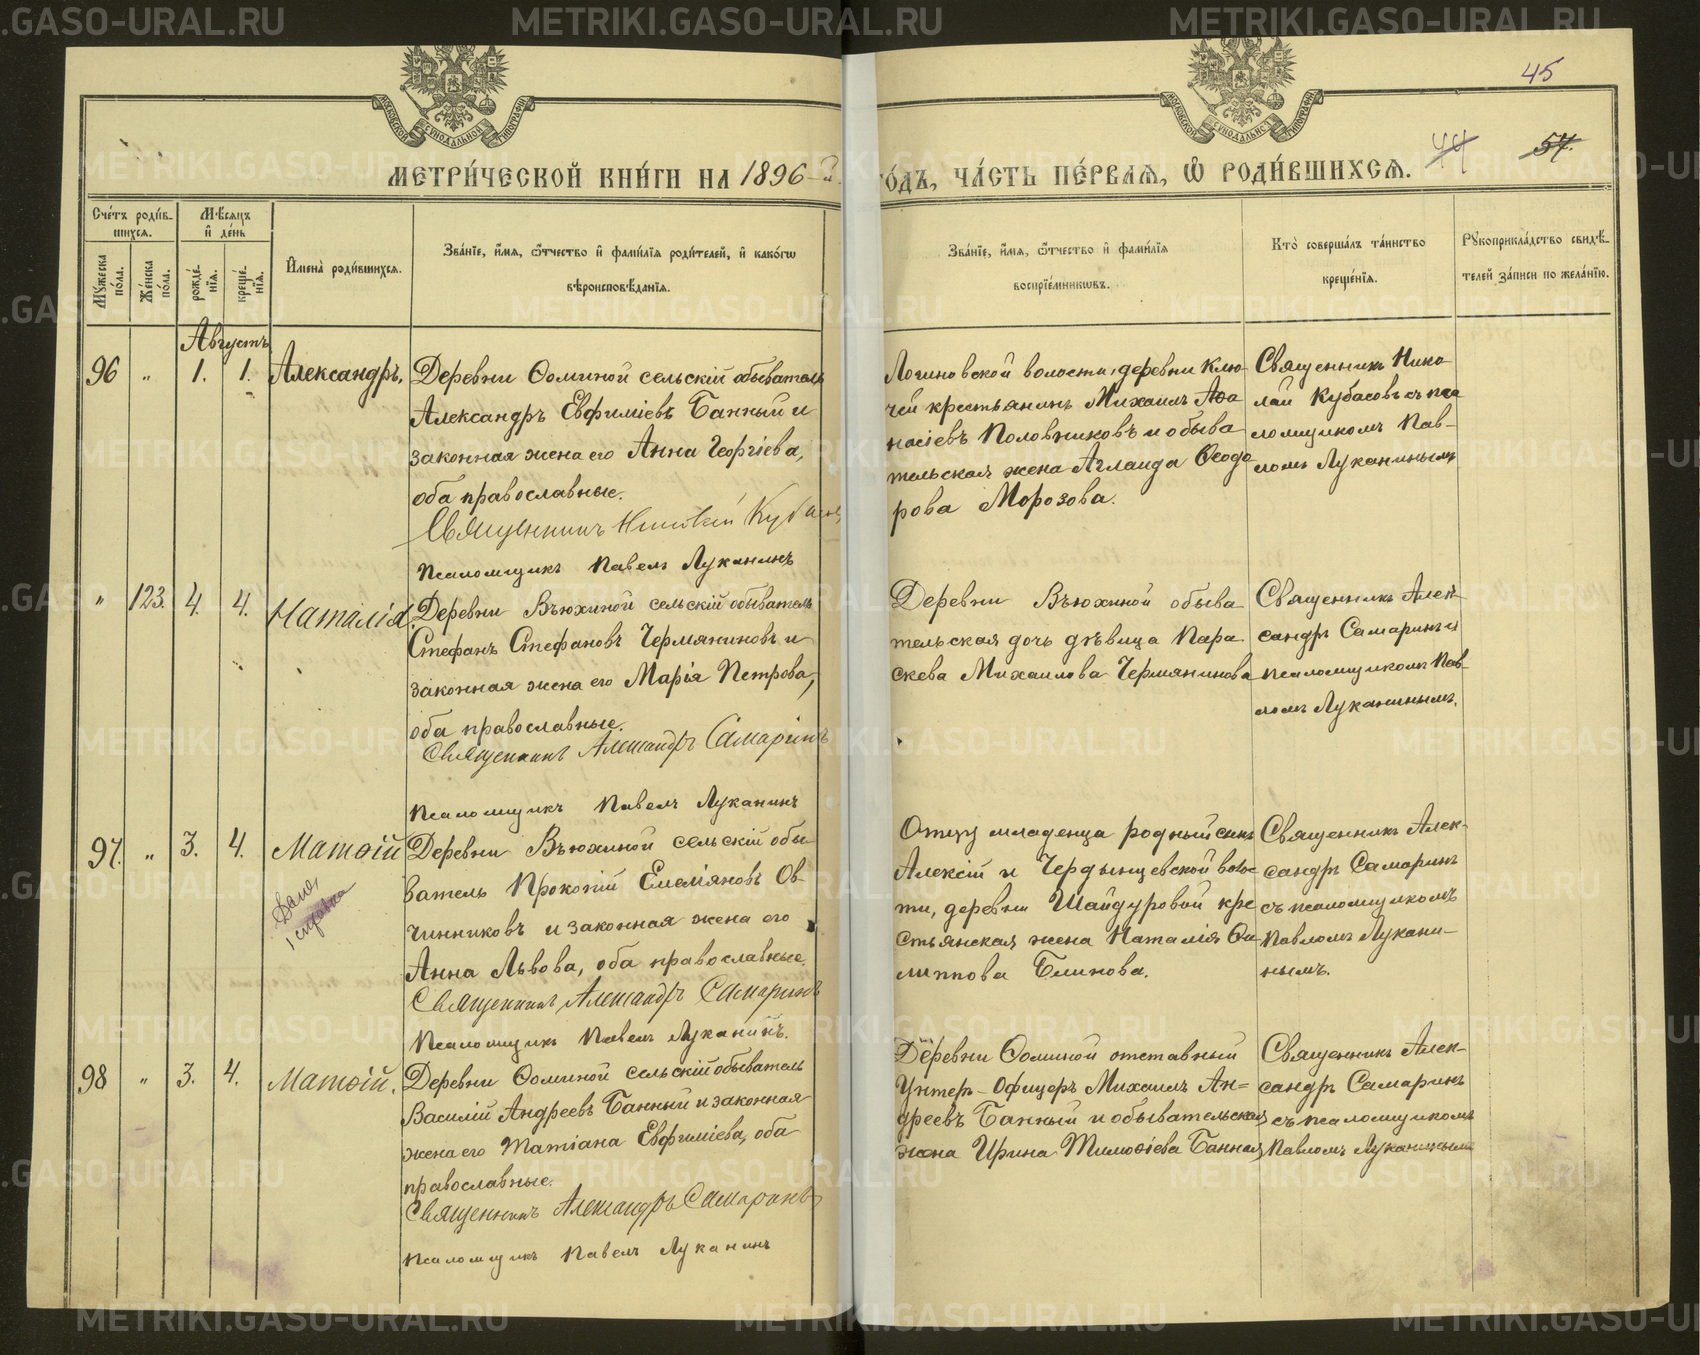 45
44
54.
МЕТРИ́ЧЕСКОЙ КНИ́ГИ НА 1896-й
ГО́ДЪ, ЧА́СТЬ ПЕ́РВАЯ, Ѽ РОДИ́ВШИХСЯ.
Сче́тъ роди́вшихся.
Му́жеска по́ла.
Же́нска по́ла.
Мѣ́сяцъ и҆ де́нь
рожде́нїя.
креще́нїя.
И҆мена̀ роди́вшихся.
Зва́нїе, и҆́мя, ѻ҆́тчество и҆ фами́лїя роди́телей, и҆ како́гѡ
вѣроисповѣ́данїя.
Зва́нїе, и҆́мя, ѻ҆́тчество и҆ фами́лїя
воспрїе́мникѡвъ.
Кто̀ соверша́лъ та́инство
креще́нїя.
Рꙋкоприкла́дство свидѣ́-
телей за́писи по жела́нїю.
Августъ
96 „ 1. 1. Александръ.
Деревни Ѳоминой сельскій обыватель
Александръ Евфиміевъ Банный и
законная жена его Анна Георгіева,
оба православные.
Священникъ Николай Кубасовъ
Псаломщикъ Павелъ Луканинъ
Логиновской волости, деревни Клю-
чей крестьянинъ Михаилъ Аѳа
насіевъ Половниковъ и обыва
тельская жена Аглаида Ѳеодо
рова Морозова.
Священникъ Нико-
лай Кубасовъ съ пса
ломщикомъ Пав-
ломъ Луканинымъ
„ 123. 4. 4. Наталія.
Деревни Вьюхиной сельскій обыватель
Стефанъ Стефановъ Чермяниновъ и
законная жена его Марія Петрова,
оба православные.
Священникъ Александръ Самаринъ
Псаломщикъ Павелъ Луканинъ
Деревни Вьюхиной обыва
тельская дочь дѣвица Пара
скева Михаилова Чермянинова
Священникъ Алек-
сандръ Самаринъ и
псаломщикомъ Пав-
ломъ Луканинымъ.
97. „ 3. 4. Матѳій
1 справка
Деревни Вьюхиной сельскій обы-
ватель Прокопій Емеліяновъ Ов-
чинниковъ и законная жена его
Анна Львова, оба православные.
Священникъ Александръ Самаринъ
Псаломщикъ Павелъ Луканинъ.
Отцу младенца родный сынъ
Алексій и Чердынцевской волос
ти, деревни Шайдуровой кре
стьянская жена Наталія Фи
липпова Блинова.
Священникъ Алек-
сандръ Самаринъ
съ псаломщикомъ
Павломъ Лукани-
нымъ.
98 „ 3. 4. Матѳій.
Деревни Ѳоминой сельскій обыватель
Василій Андреевъ Банный и законная
жена его Татіана Евфиміева, оба
православные.
Священникъ Александръ Самаринъ
Псаломщикъ Павелъ Луканинъ
Деревни Ѳоминой отставный
Унтеръ-Офицеръ Михаилъ Ан=
дреевъ Банный и обывательская
жена Ирина Тимоѳіева Банная
Священникъ Алек-
сандръ Самаринъ
съ псаломщикомъ
Павломъ Луканинымъ
METRIKI.GASO-URAL.RU